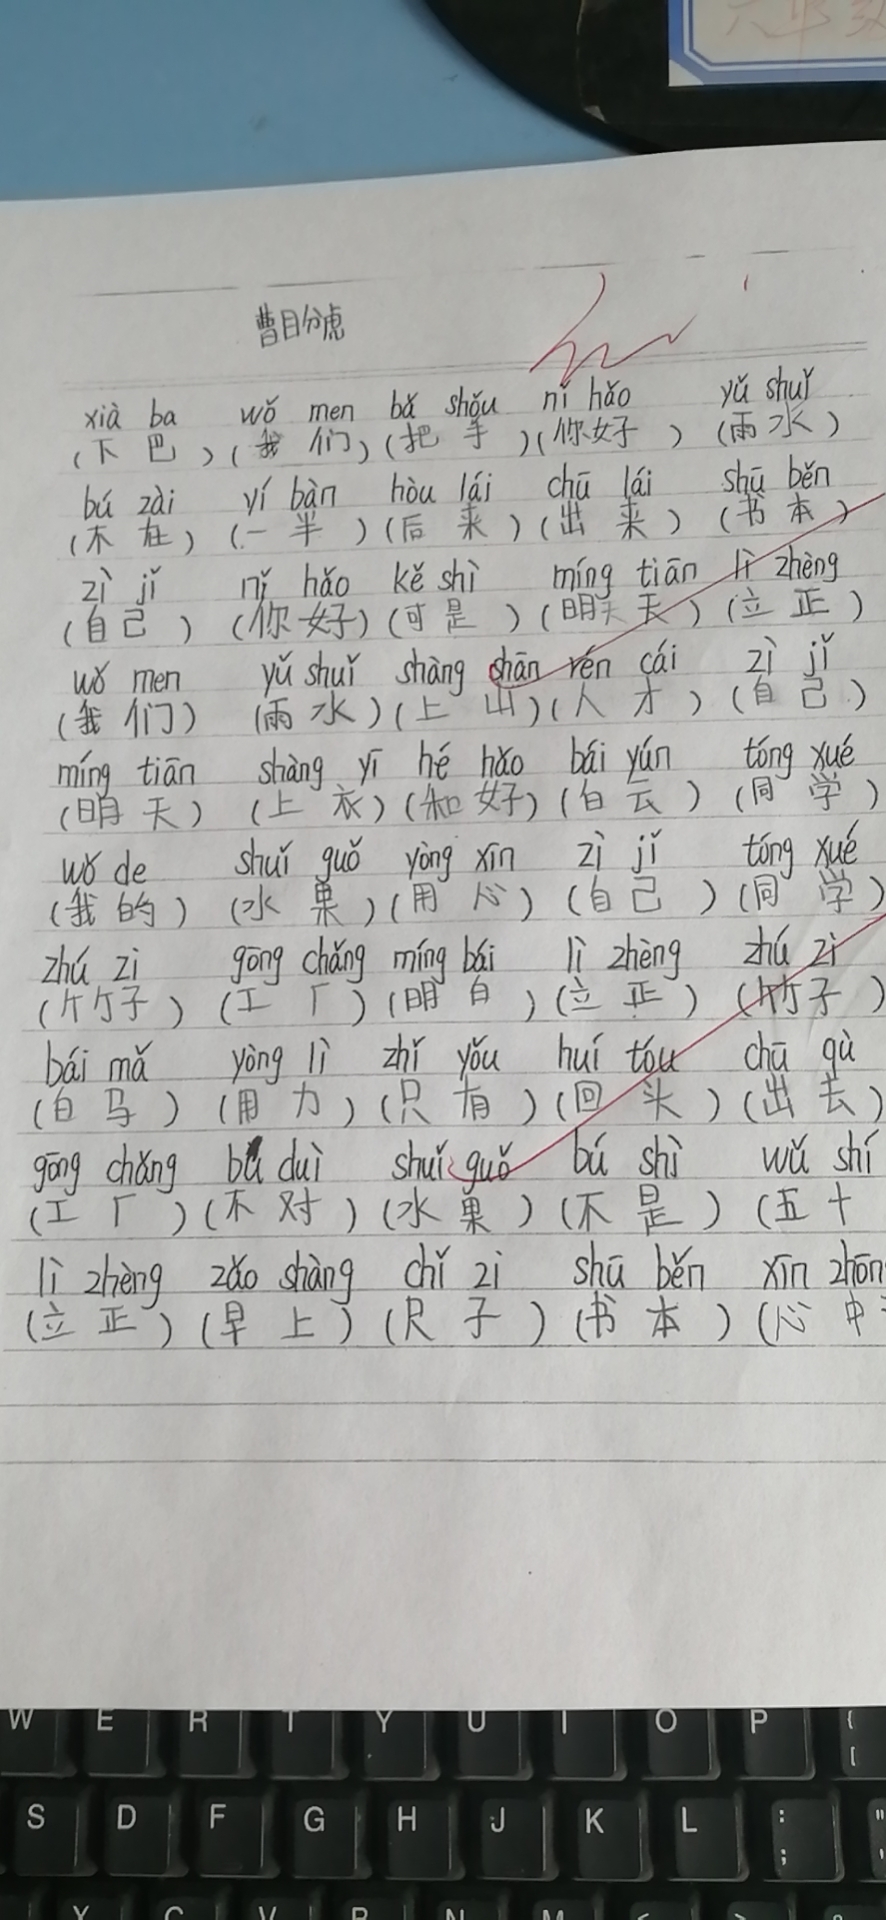 六年级
曹目分虎
xià ba wǒ men bǎ shǒu nǐ hǎo yǔ shuǐ
(下巴)(我们)(把手)(你好)(雨水)
bú zài yí bàn hòu lái chū lái shū běn
(不在)(一半)(后来)(出来)(书本)
zì jǐ nǐ hǎo kě shì míng tiān lì zhèng
(自己)(你好)(可是)(明天)(立正)
wǒ men yǔ shuǐ shàng shān rén cái zì jǐ
(我们)(雨水)(上山)(人才)(自己)
míng tiān shàng yī hé hǎo bái yún tóng xué
(明天)(上衣)(和好)(白云)(同学)
wǒ de shuǐ guǒ yòng xīn zì jǐ tóng xué
(我的)(水果)(用心)(自己)(同学)
zhú zi gōng chǎng míng bái lì zhèng zhú zi
(竹子)(工厂)(明白)(立正)(竹子)
bái mǎ yòng lì zhǐ yǒu huí tóu chū qù
(白马)(用力)(只有)(回头)(出去)
gōng chǎng bú duì shuǐ guǒ bú shì wǔ shí
(工厂)(不对)(水果)(不是)(五十
lì zhèng zǎo shàng chǐ zi shū běn xīn zhōn
(立正)(早上)(尺子)(书本)(心中
W E R T Y U I O P { [
S D F G H J K L : ; "
X C V B N M < >